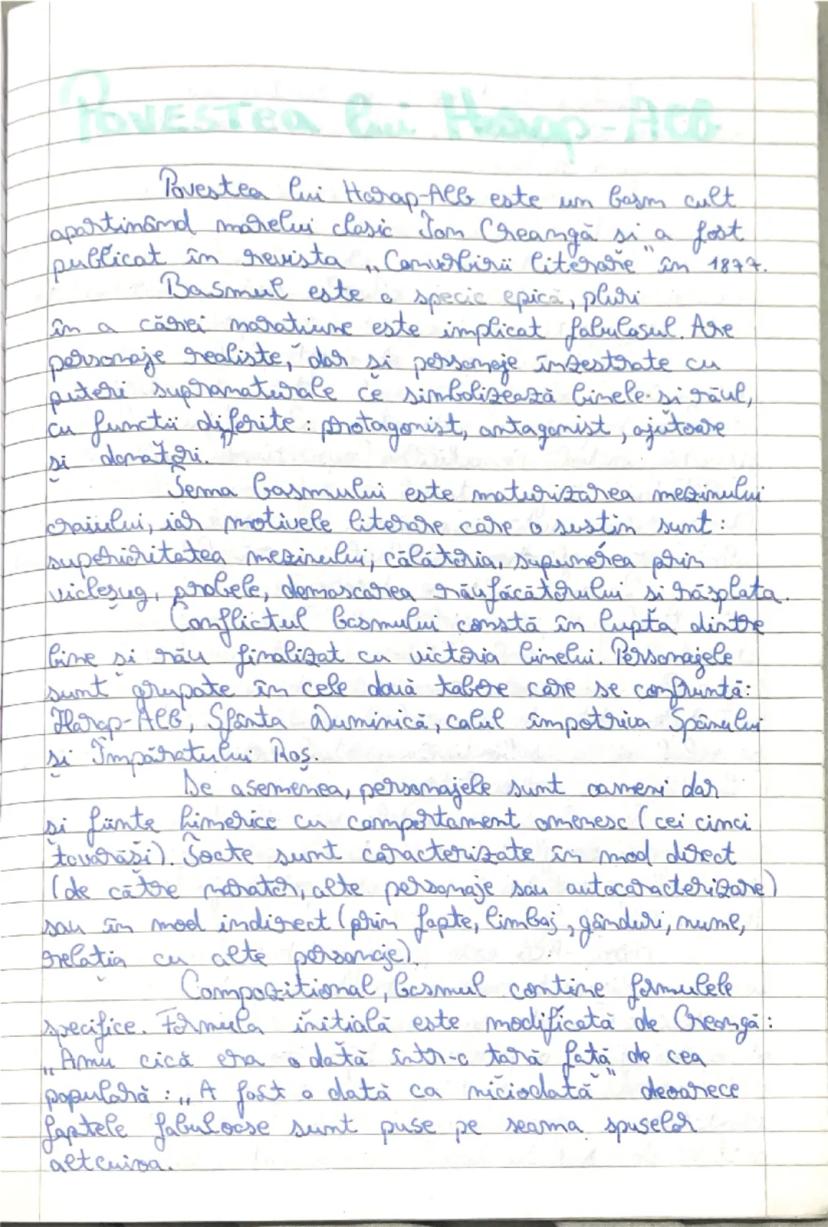 Povestea lui Harap-Alb
Povestea lui Harap-Alb este un basm cult
apartinând marelui clasic Ion Creangă si a fost
publicat în revista „Convorbirii literare" în 1877.
Basmul este o specie epică, pluri
în a cărei naratiune este implicat fabulosul. Are
personaje realiste, dar si personaje înzestrate cu
puteri supranaturale ce simbolizează binele si răul,
cu functii diferite: protagonist, antagonist, ajutoare
și donatori.
Tema basmului este maturizarea mezinului
craiului, iar motivele literare care o sustin sunt:
superioritatea mezinului, călătoria, supunerea prin
vicleșug, probele, demascarea răufăcătorului si răsplata.
Conflictul basmului constă în lupta dintre
bine și rău finalizat cu victoria binelui. Personajele
sunt grupate în cele două tabere care se confruntă:
Harap-Alb, Sfânta Duminică, calul împotriva Spânului
și Împăratului Roș.
De asemenea, personajele sunt oameni dar
și ființe himerice cu comportament omenesc (cei cinci
tovarăși). Toate sunt caracterizate în mod direct
(de către narator, alte personaje sau autocaracterizare)
sau în mod indirect (prin fapte, limbaj, gânduri, nume,
relatia cu alte personaje).
Compozitional, basmul contine formulele
specifice. Formula initială este modificată de Creangă:
„Amu cică era odată într-o tară fată de cea
populară: „A fost o dată ca niciodată" deoarece
faptele fabuloase sunt puse pe seama spuselor
altcuiva.